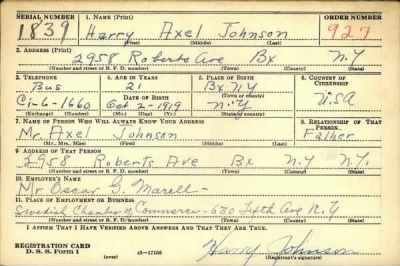 SERIAL NUMBER 1. NAME (Print) ORDER NUMBER
1839 Harry Axel Johnson 927
(First) (Middle) (Last)
2. ADDRESS (Print)
2958 Roberts Ave Bx N.Y
(Number and street or R. F. D. number) (Town) (County) (State)
3. TELEPHONE 4. AGE IN YEARS 5. PLACE OF BIRTH 6. COUNTRY OF CITIZENSHIP
Bus 21 Bx N.Y
DATE OF BIRTH (Town or county)
Ci-6-1660 Oct 2-1919 N.Y. USA
(Exchange) (Number) (Mo.) (Day) (Yr.) (State or country)
7. NAME OF PERSON WHO WILL ALWAYS KNOW YOUR ADDRESS 8. RELATIONSHIP OF THAT PERSON
Mr. Axel Johnson Father
(Mr., Mrs., Miss) (First) (Middle) (Last)
9. ADDRESS OF THAT PERSON
2958 Roberts Ave Bx N.Y N.Y.
(Number and street or R. F. D. number) (Town) (County) (State)
10. EMPLOYER'S NAME
Mr Oscar G. Marell -
11. PLACE OF EMPLOYMENT OR BUSINESS
Swedish Chamber of Commerce - 630 Fifth Ave N.Y
(Number and street or R. F. D. number) (Town) (County) (State)
I AFFIRM THAT I HAVE VERIFIED ABOVE ANSWERS AND THAT THEY ARE TRUE.
REGISTRATION CARD
D. S. S. Form 1 (over) 16-17105 Harry Johnson